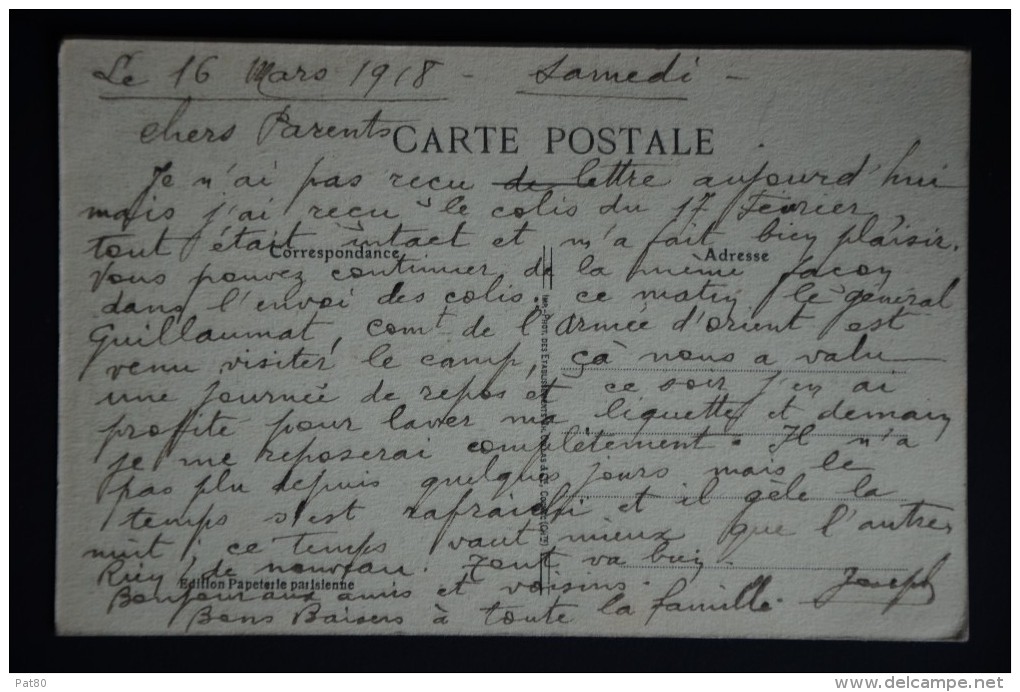 Le 16 Mars 1918 - Samedi -
chers Parents
CARTE POSTALE
Je n'ai pas recu de lettre aujourd'hui
mais j'ai recu le colis du 17 Février,
tout était intact et m'a fait bien plaisir.
Correspondance
Adresse
Vous pouvez continuer de la même facon
dans l'envoi des colis. ce matin le général
Guillaumat, comt de l'Armée d'orient est
venu visiter le camp, çà nous a valu
une journée de repos et ce soir j'en ai
profité pour laver ma liquette et demain
je me reposerai complètement. Il n'a
pas plu depuis quelques jours mais le
temps s'est rafraichi et il gèle la
nuit ; ce temps vaut mieux que l'autre
Rien de nouveau. Tout va bien
Edition Papeterie parisienne
Bonjour aux amis et voisins.
Joseph
Bons Baisers à toute la famille.
Pat80
delcampe.net